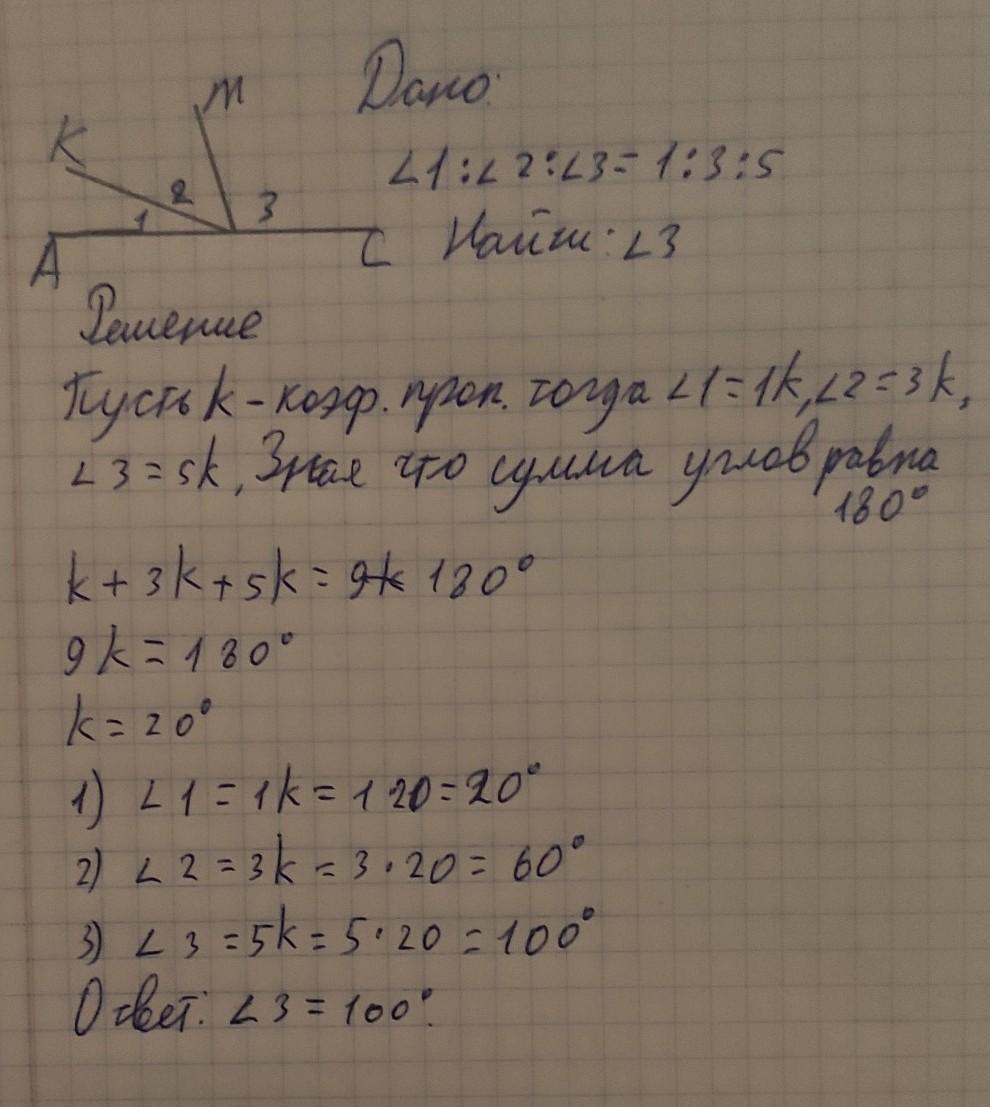 M
Дано:
K
∠1:∠2:∠3=1:3:5
2
3
1
Найти: ∠3
A
C
Решение
Пусть k - коэф. проп. тогда ∠1=1k, ∠2=3k,
∠3=5k, Зная что сумма углов равна
180°
k+3k+5k=9k 180°
9k=180°
k=20°
1) ∠1=1k=1 20=20°
2) ∠2=3k=3·20=60°
3) ∠3=5k=5·20=100°
Ответ: ∠3=100°.